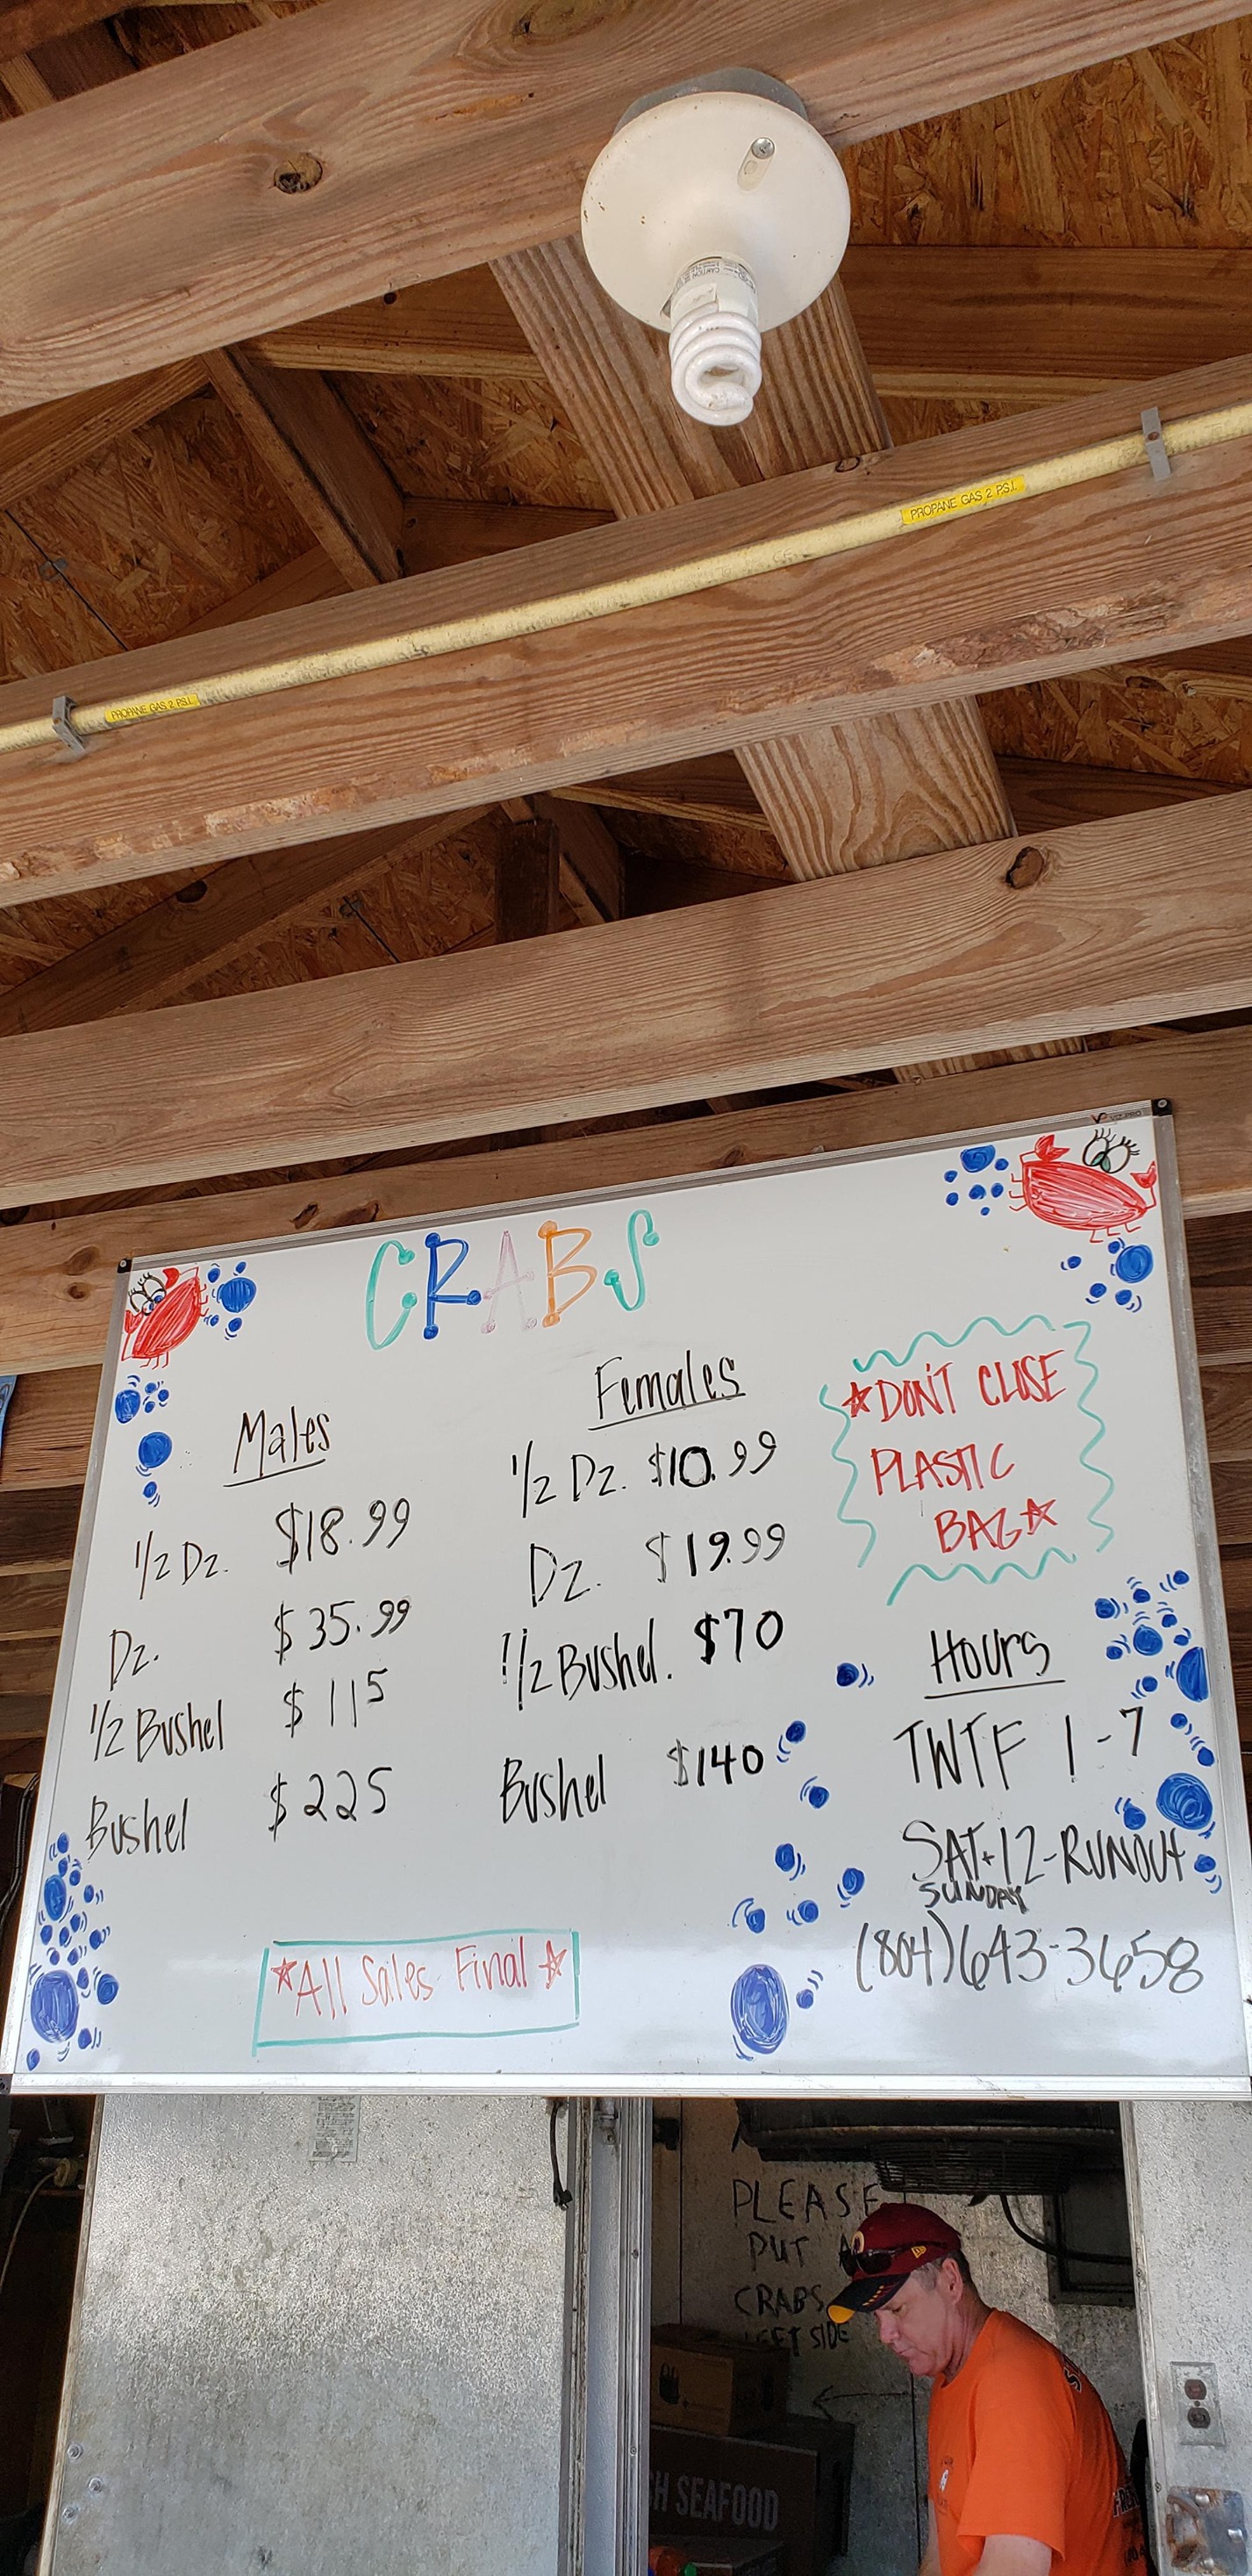 PROPANE GAS 2 P.S.I.
PROPANE GAS 2 P.S.I.
VIZ-PRO
CRABS
Males
1/2 Dz. $18.99
Dz. $35.99
1/2 Bushel $115
Bushel $225
Females
1/2 Dz. $10.99
Dz. $19.99
1/2 Bushel. $70
Bushel $140
DON'T CLOSE
PLASTIC
BAG
Hours
TWTF 1-7
SAT+12-RUNOUT
SUNDAY
(804)643-3658
All Sales Final
PLEASE
PUT
CRABS
SIDE
SEAFOOD